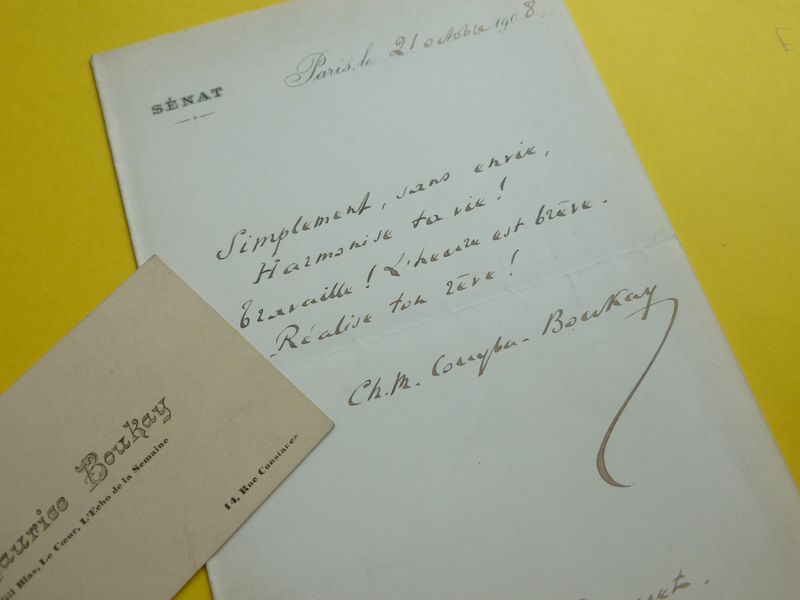 SÉNAT
Paris, le 21 octobre 1908.
Simplement, sans envie,
Harmonise ta vie!
Travaille! L'heure est brève.
Réalise ton rêve!
Ch. M. Couyba-Boukay
Maurice Boukay
Gil Blas, Le Cœur, L'Echo de la Semaine
14, Rue Constance